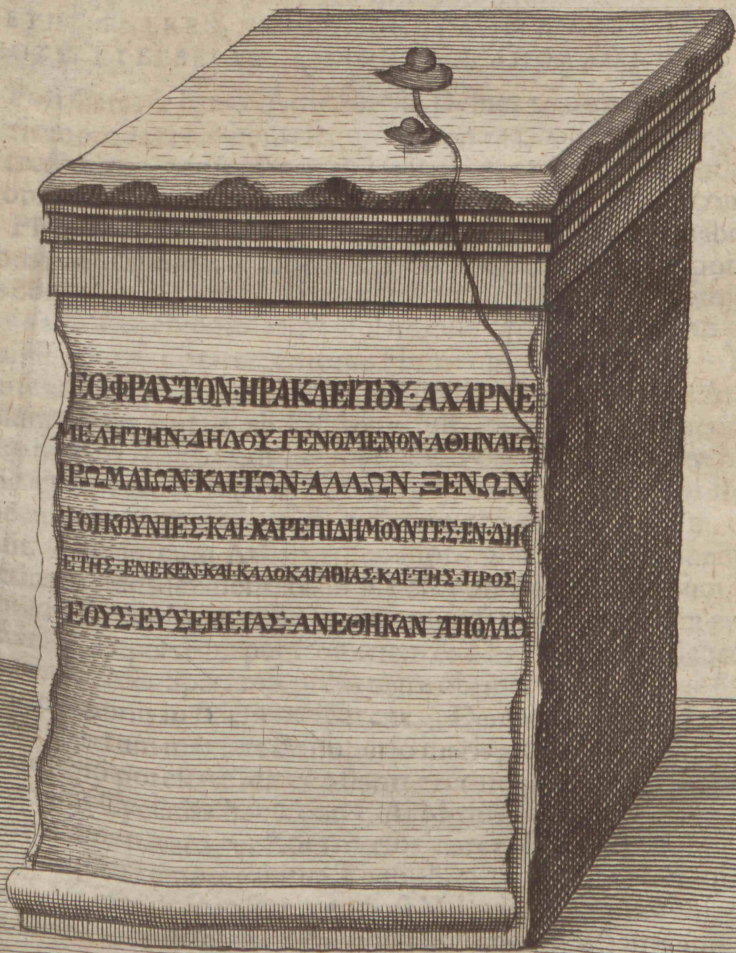 ΕΟΦΡΑΣΤΟΝ·ΗΡΑΚΛΕΙΤΟΥ·ΑΧΑΡΝΕ
ΜΕΛΗΤΗΝ·ΔΗΛΟΥ·ΓΕΝΟΜΕΝΟΝ·ΑΘΗΝΑΙΩ
ΡΩΜΑΙΩΝ·ΚΑΙ·ΤΩΝ·ΑΛΛΩΝ·ΞΕΝΩΝ
ΤΟΙΚΟΥΝΙΕΣ·ΚΑΙ ΧΑΡΕΠΙΔΗΜΟΥΝΤΕΣ·ΕΝ·ΔΗ
ΕΤΗΣ·ΕΝΕΚΕΝ·ΚΑΙ·ΚΑΛΩΚΑΓΑΘΙΑΣ·ΚΑΙ·ΤΗΣ·ΠΡΟΣ
ΕΟΥΣ·ΕΥΣΕΒΕΙΑΣ·ΑΝΕΘΗΚΑΝ ΑΠΟΛΛΩ